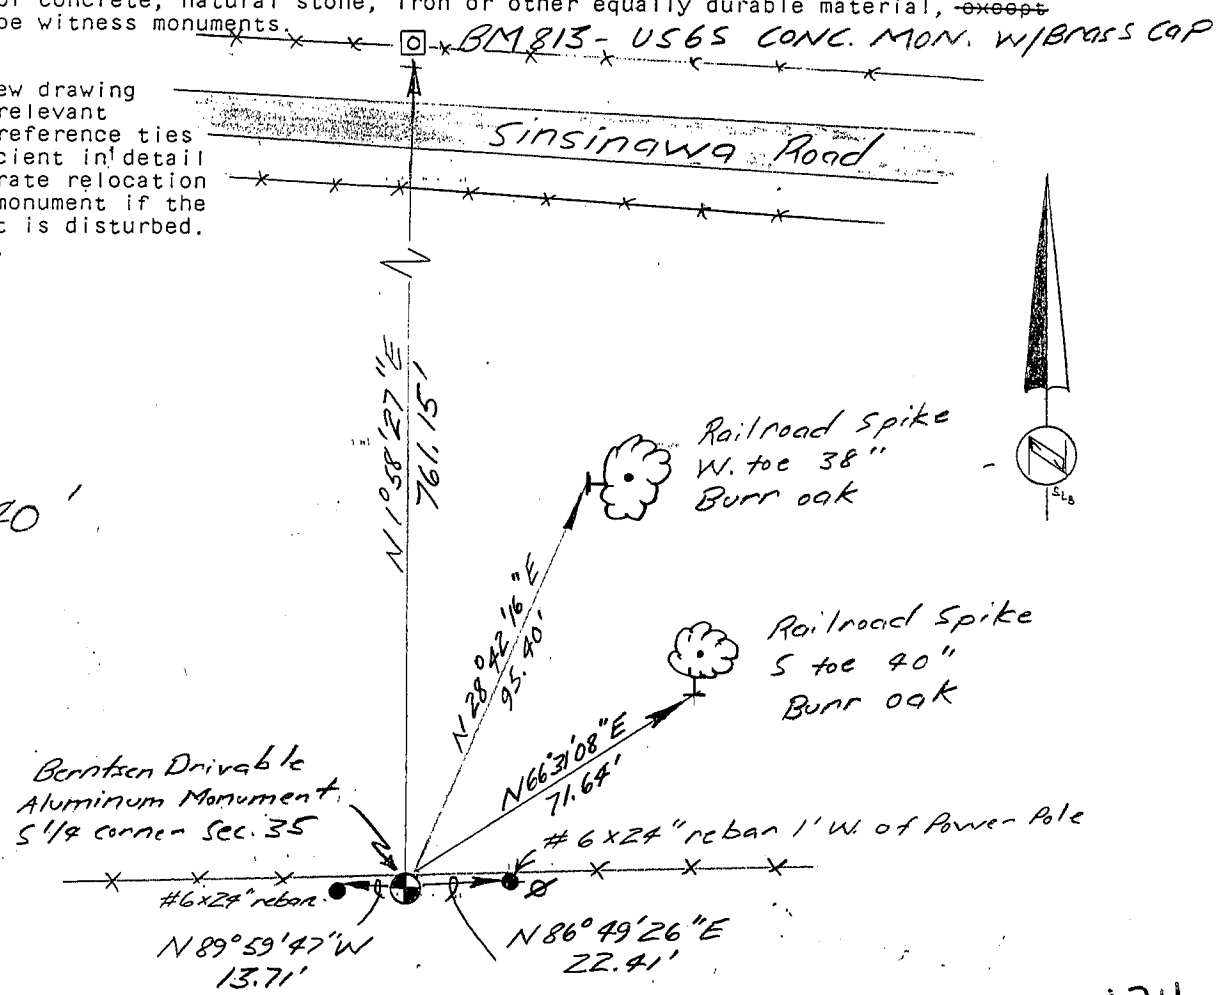 of concrete, natural stone, iron or other equally durable material, except
be witness monuments.
BM 813 - USGS CONC. MON. W/Brass Cap
ew drawing
relevant
reference ties
cient in detail
rate relocation
monument if the
t is disturbed.
Sinsinawa Road
N 1° 58' 27" E
761.15'
Railroad Spike
W. toe 38"
Burr oak
20'
N
SLB
N 28° 42' 16" E
95.40'
Railroad Spike
S toe 40"
Burr oak
N 66° 31' 08" E
71.64'
Berntsen Drivable
Aluminum Monument
S 1/4 corner Sec. 35
#6x24" rebar 1' W. of Power Pole
#6x24" rebar
N 89° 59' 47" W
13.71'
N 86° 49' 26" E
22.41'